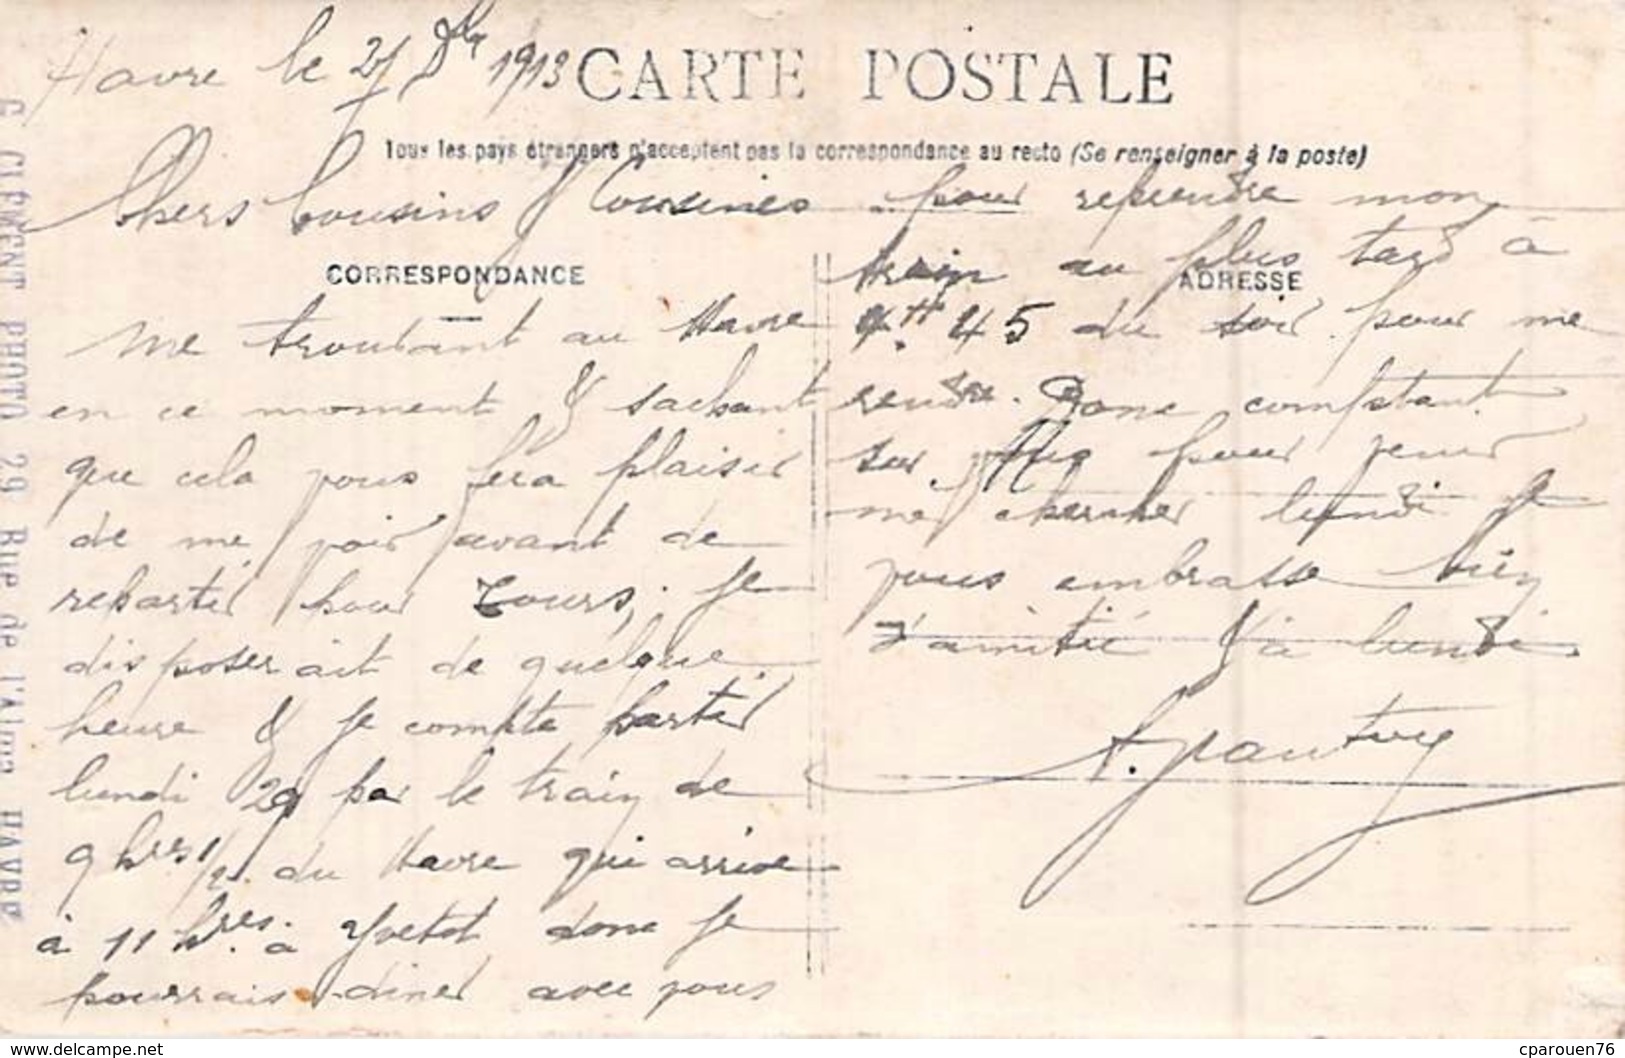 Havre le 27 Dbr 1913
CARTE POSTALE
Tous les pays étrangers n'acceptent pas la correspondance au recto (Se renseigner à la poste)
Chers Cousins & Cousines
CORRESPONDANCE
me trouvant au Havre
en ce moment & sachant
que cela vous fera plaisir
de me voir avant de
repartir pour Tours, Je
disposerait de quelque
heure & je compte partir
lundi 29 par le train de
9 hres 1/2 du Havre qui arrive
à 11 hres. a Yvetot donc Je
pourrais diner avec vous
pour reprendre mon
train au plus tard à
ADRESSE
4H 45 du soir pour me
rendre. Donc comptant
sur pour venir
me chercher lundi Je
vous embrasse bien
d'amitié & à lundi
G. CLÉMENT PHOTO 29 Rue de l'Alma HAVRE
cparouen76